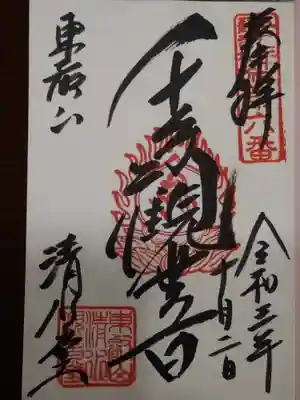 奉拝
令和三年
十月二日
千手観世音
東叡山
清水堂